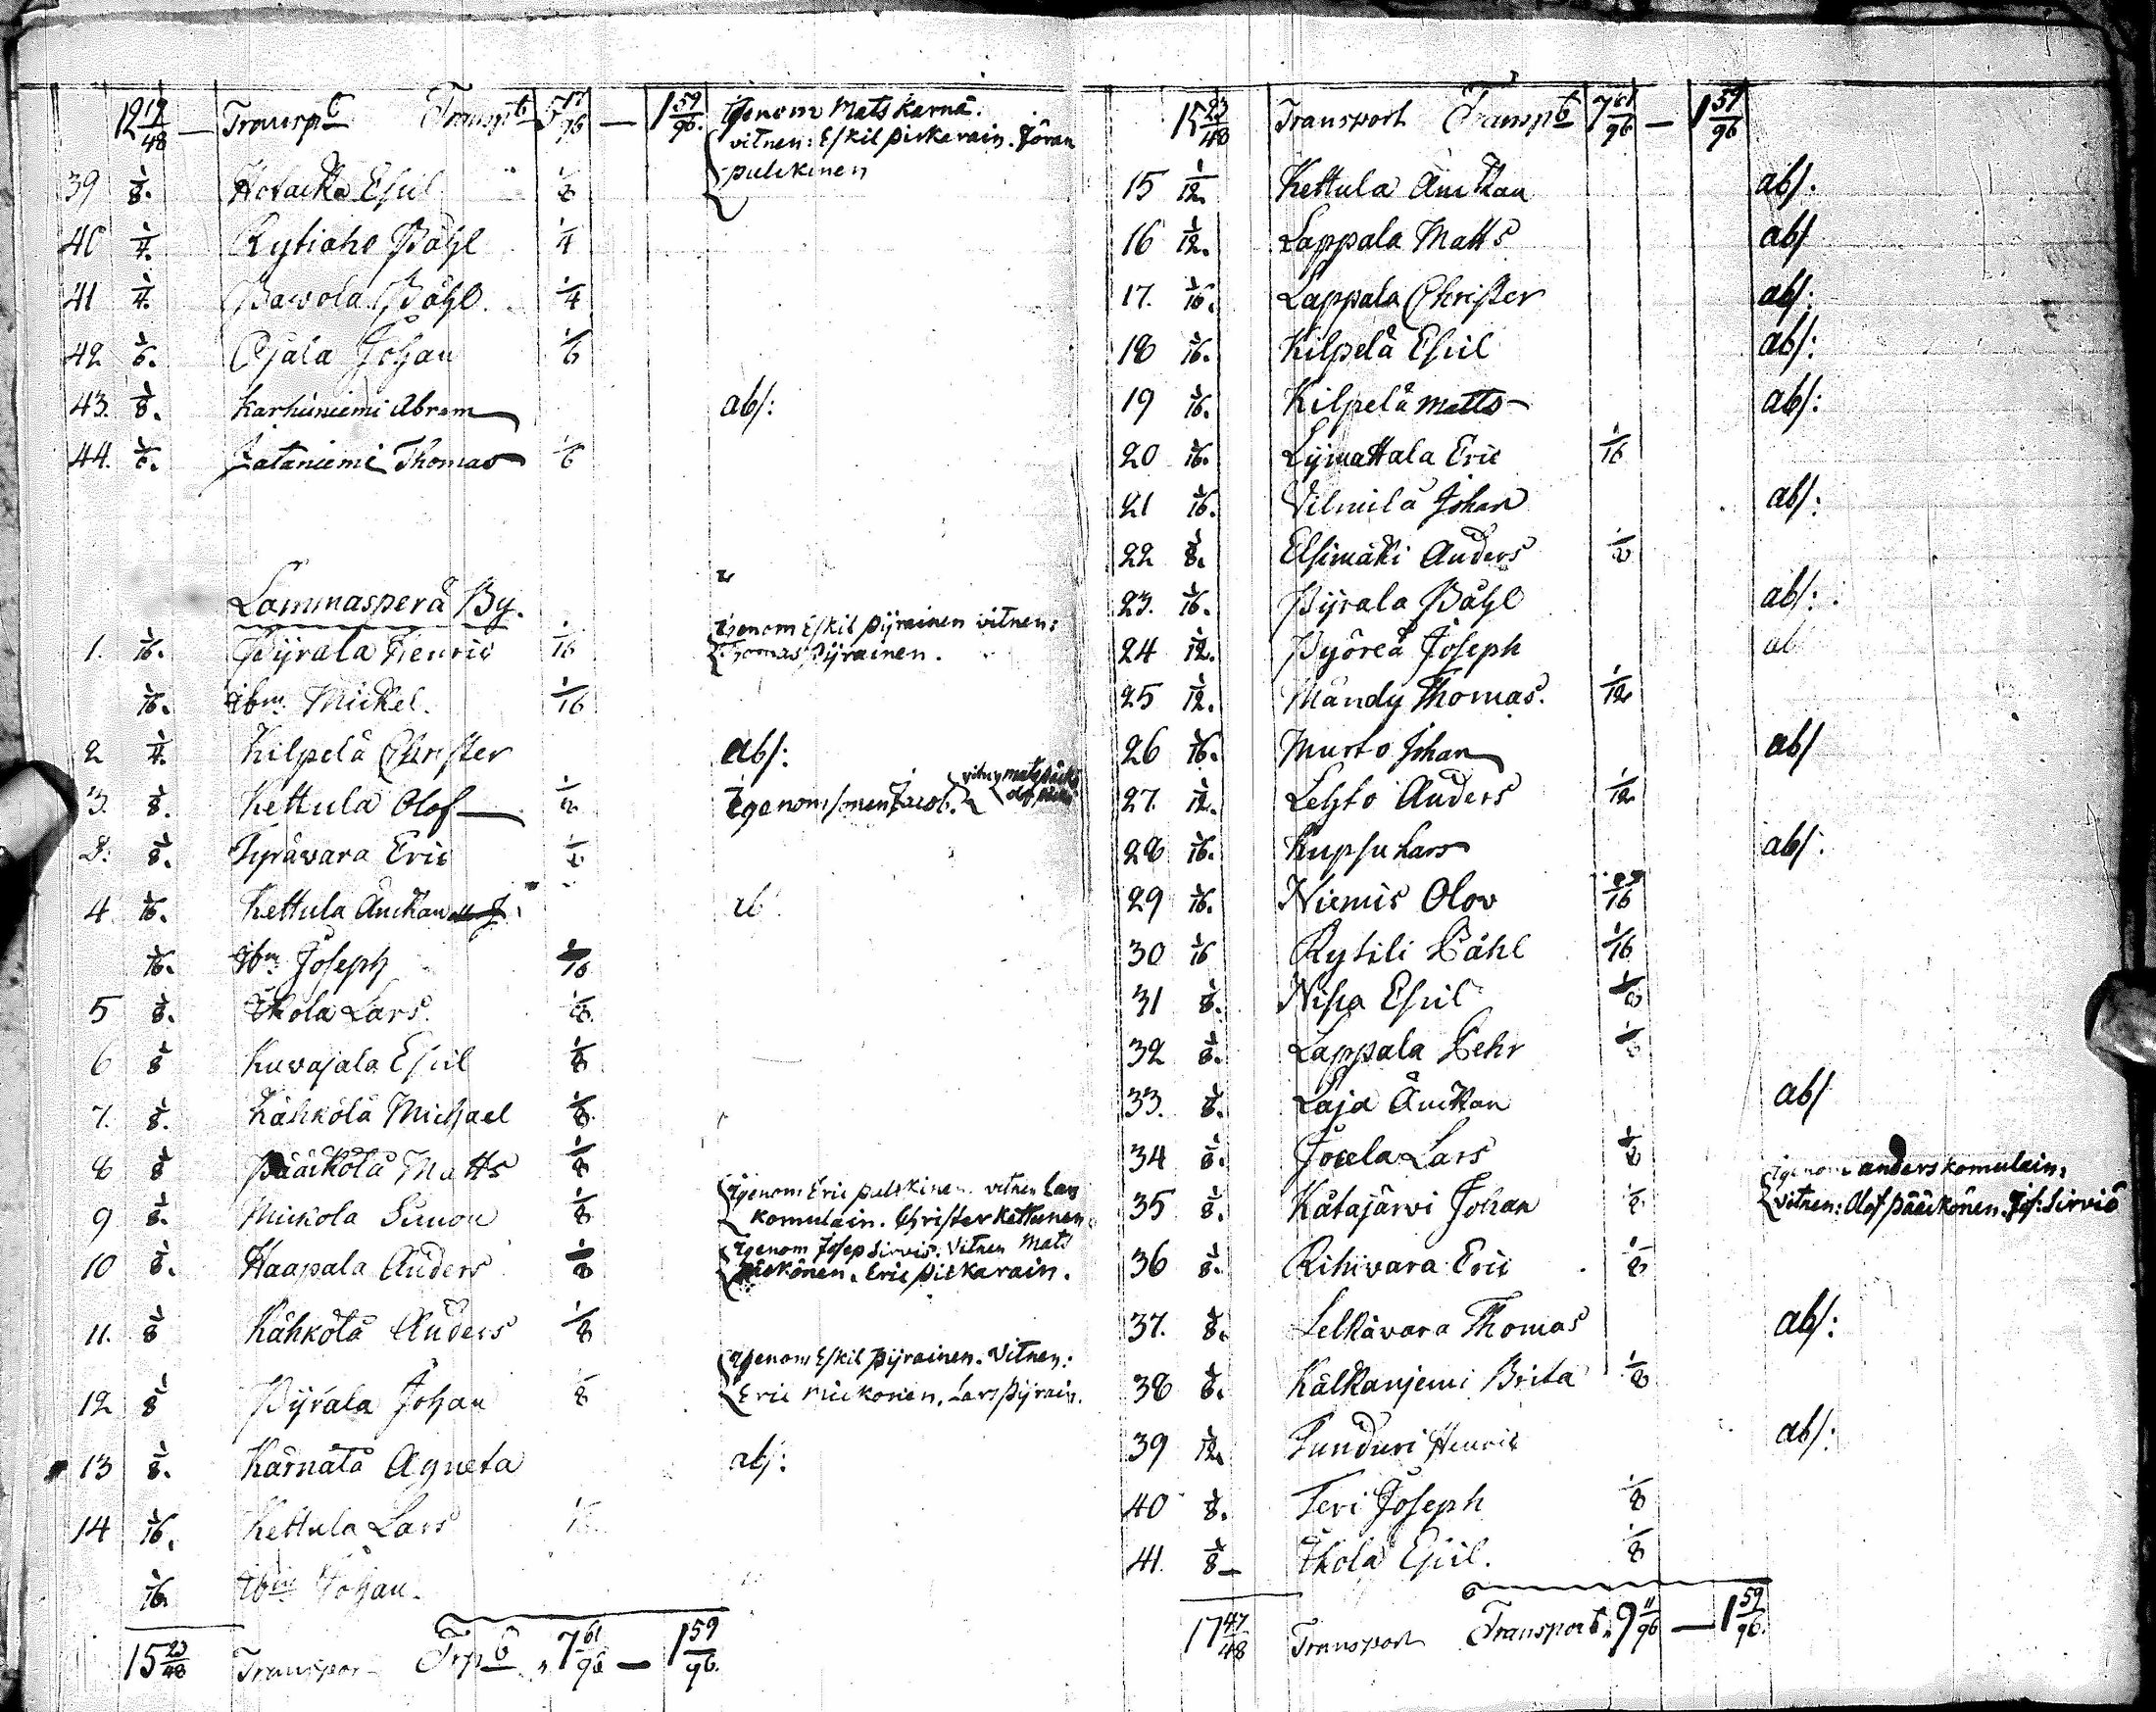 12 19/48 — Transpt Transpt 5 17/96 — 1 59/96. Igenom Mats Karnä.
vitnen: Eskil Pirkerain. Jöran
pulckinen
39 1/8. Hotacka Esil 1/8
40 1/4. Rytiaho Påhl 1/4
41 1/4. Pawola Påhl. 1/4
42 1/6. Ojala Johan 1/6
43. 1/8. Karhuniemi Abram abs:
44. 1/6. Jataniemi Thomas 1/6
Lammasperä By.
1. 1/16. Pyrälä Henric 1/16 Igenom Eskil Pijrainen vitnen:
Thomas Pijrainen.
1/16. Ibm Mickel. 1/16
2 1/4. Kilpelä Christer abs:
3. 1/8. Kettula Olof 1/8 Igenom sonen Jacob.
3: 1/8. Tyräwara Eric 1/8
4 1/16. Kettula Anckan ab
1/16. Ibm Joseph 1/16
5 1/8. Ikola Lars. 1/8.
6 1/8 Kuvajala Esil 1/8
7. 1/8. Kähkölä Michael 1/8.
8 1/8 Pääckölä Matts 1/8
9 1/8. Mickola Simon 1/8 Igenom Eric pulckinen. vitnen Lars
Komulain. Christer Kettunen.
10 1/8. Haapala Anders 1/8 Igenom Josep Sirviö. Vitnen Mats
Mickönen. Eric Pickarain.
11. 1/8 Kähkölä Anders 1/8
12 1/8 Pyrälä Johan 1/8 Igenom Eskil Pijrainen. Vitnen:
Eric Mickonen. Lars Pijrain.
13 1/8. Kärnälä Agneta abs:
14 1/16. Kettula Lars 1/16
1/16. Ibm Johan.
15 23/48 Transpor Trpt 7 61/96 — 1 59/96.
15 23/48 Transport Transpt 7 61/96 — 1 59/96
15 1/12. Kettula Anckan abs.
16 1/12. Lappala Matts abs
17. 1/16. Lappala Christer abs:
18 1/16. Kilpelä Esil abs:
19 1/16. Kilpelä Matts abs:
20 1/16. Lijmattala Eric 1/16
21 1/16. Vilmilä Johan abs:
22 1/8. Elsimäki Anders 1/8
23. 1/16. Pyrälä Påhl abs:
24 1/12. Pyöreä Joseph ab
25 1/12. Mändy Thomas. 1/12
26 1/16. Murto Johan abs
27. 1/12. Lehto Anders 1/12
28 1/16. Kupsu Lars abs:
29 1/16. Niemis Olov 1/16
30 1/16 Rytili Påhl 1/16
31 1/8. Niska Esil 1/8
32 1/8. Lappala Pehr 1/8
33. 1/8. Laja Anckan abs
34 1/8. Jocela Lars 1/8
35 1/8. Kätajärvi Johan 1/8 Igenom anders komulain.
vitnen: Olof Pääckönen. Jos: Sirviö
36 1/8. Rihivara Eric 1/8
37. 1/8. Selkävara Thomas abs:
38 1/8. Kälkänjemi Brita 1/8
39 1/12. Tunduri Henric abs:
40 1/8. Teri Joseph 1/8
41. 1/8 Ikola Esil. 1/8
17 47/48 Transport Transport 9 11/96 — 1 59/96.